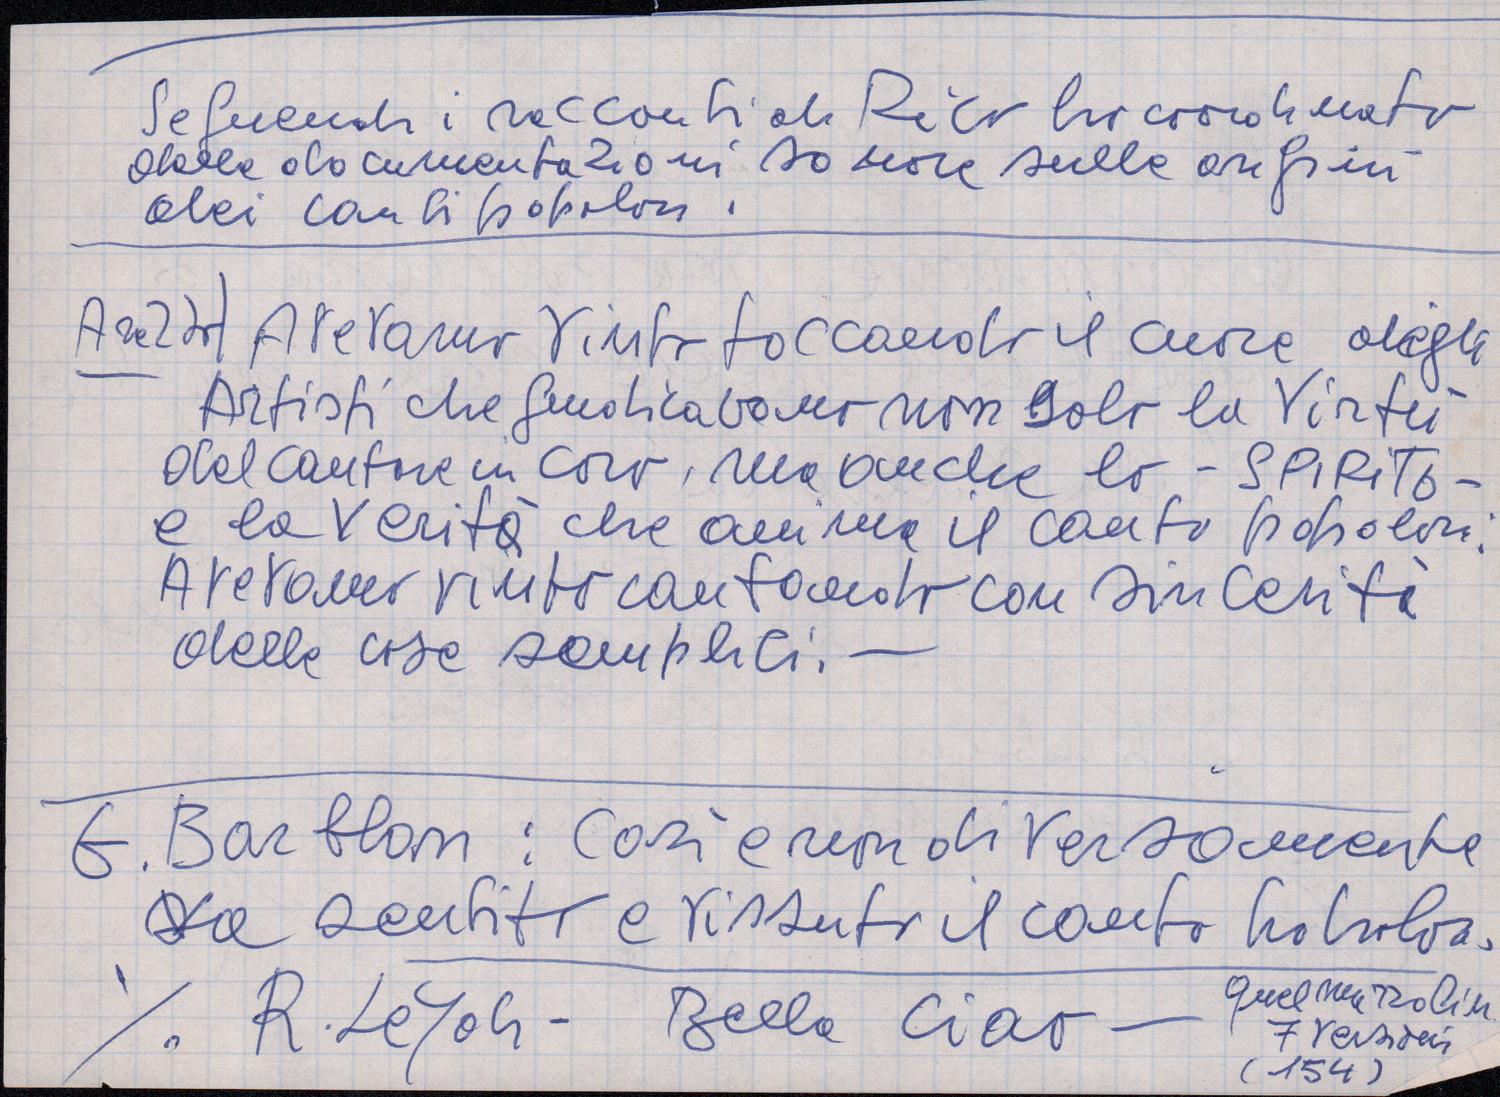 Seguendo i racconti di Rico ho coordinato
delle documentazioni sonore sulle origini
dei canti popolari.
Arezzo) Avevamo vinto toccando il cuore degli
Artisti che giudicavano non solo la Virtù
del cantore in coro, ma anche lo - SPIRITO -
e la Verità che anima il canto popolari.
Avevamo vinto cantando con sincerità
delle cose semplici. —
G. Barblan : Così e non diversamente
va sentito e vissuto il canto popolar.
R. Leydi - Bella Ciao —
quel mazzolin
7 versioni
(154)